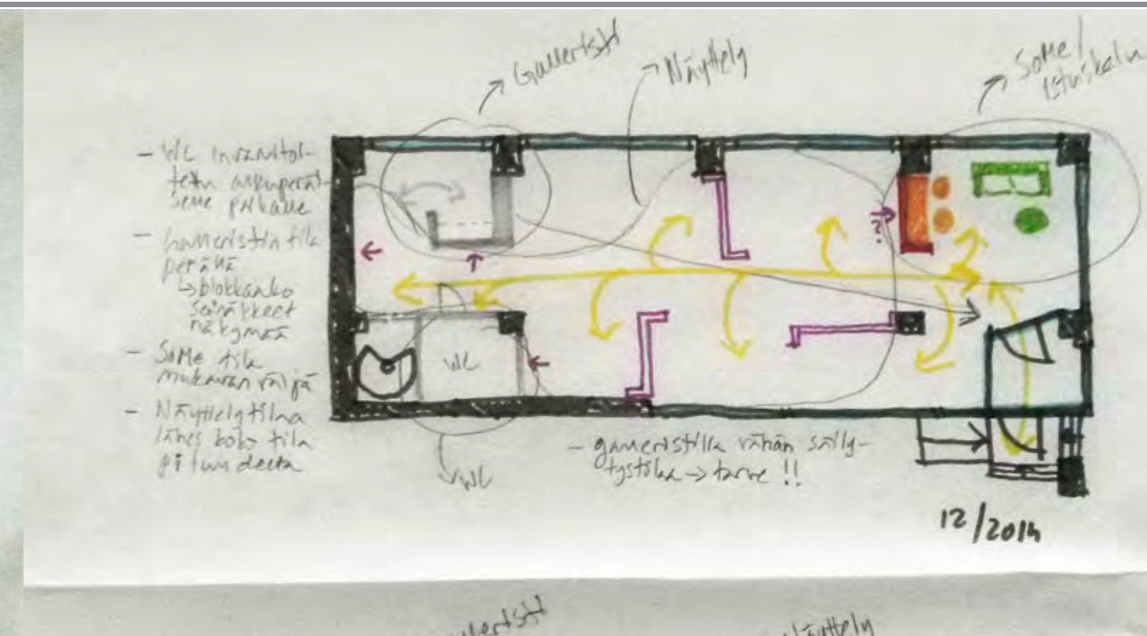 Galleristi
Näyttely
SoMe /
- WC invamitoi-
tettu
- Galleristin tila
perällä
↳ blokkaako
seinäkkeet
näkymää
- SoMe tila
mukavan väljä
- Näyttelytilaa
lähes koko tila
pituudelta
?
WC
WC
- galleristilla vähän säily-
tystilaa → tarve !!
12/2014
Näyttely